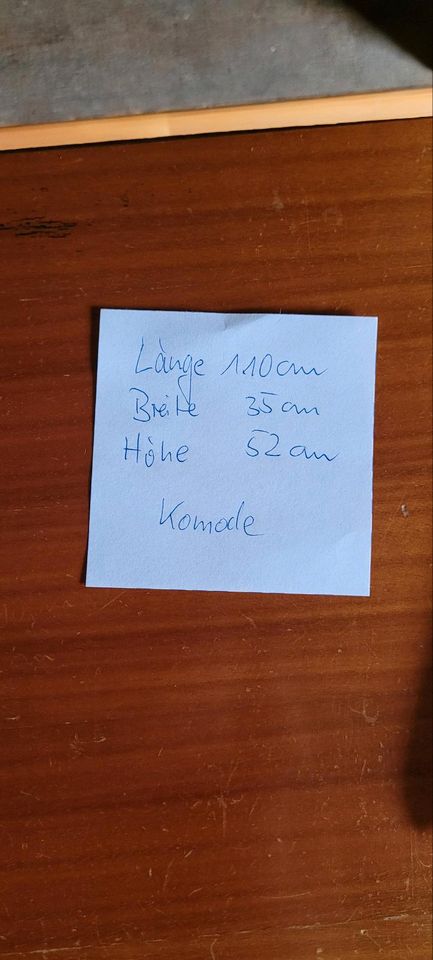 Länge 110cm
Breite 35cm
Höhe 52cm
Komode